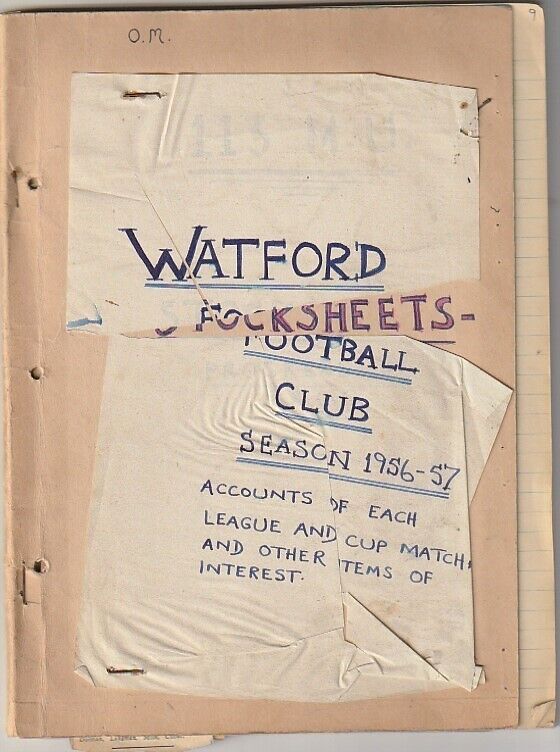 O.M.
9
115 M.U.
WATFORD
STOCKSHEETS-
FOOTBALL
CLUB
SEASON 1956-57
ACCOUNTS OF EACH
LEAGUE AND CUP MATCH,
AND OTHER ITEMS OF
INTEREST.